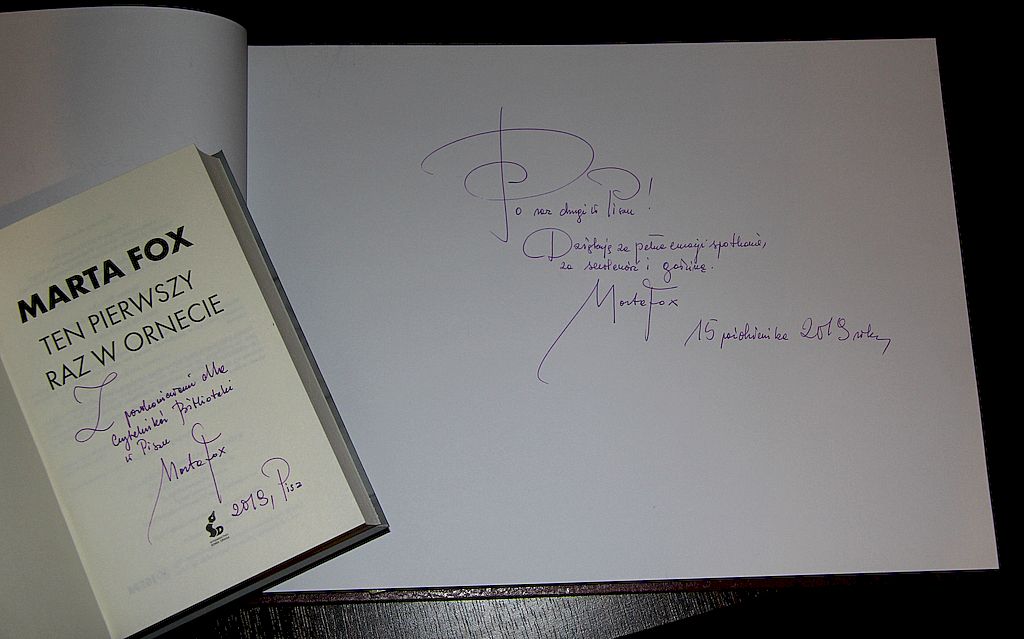 MARTA FOX
TEN PIERWSZY
RAZ W ORNECIE
Z pozdrowieniami dla
Czytelników Biblioteki
w Piszu
Marta Fox
2019, Pisz
Po raz drugi w Piszu!
Dziękuję za pełne emocji spotkanie,
za serdeczność i gościnę.
Marta Fox
15 października 2019 roku,